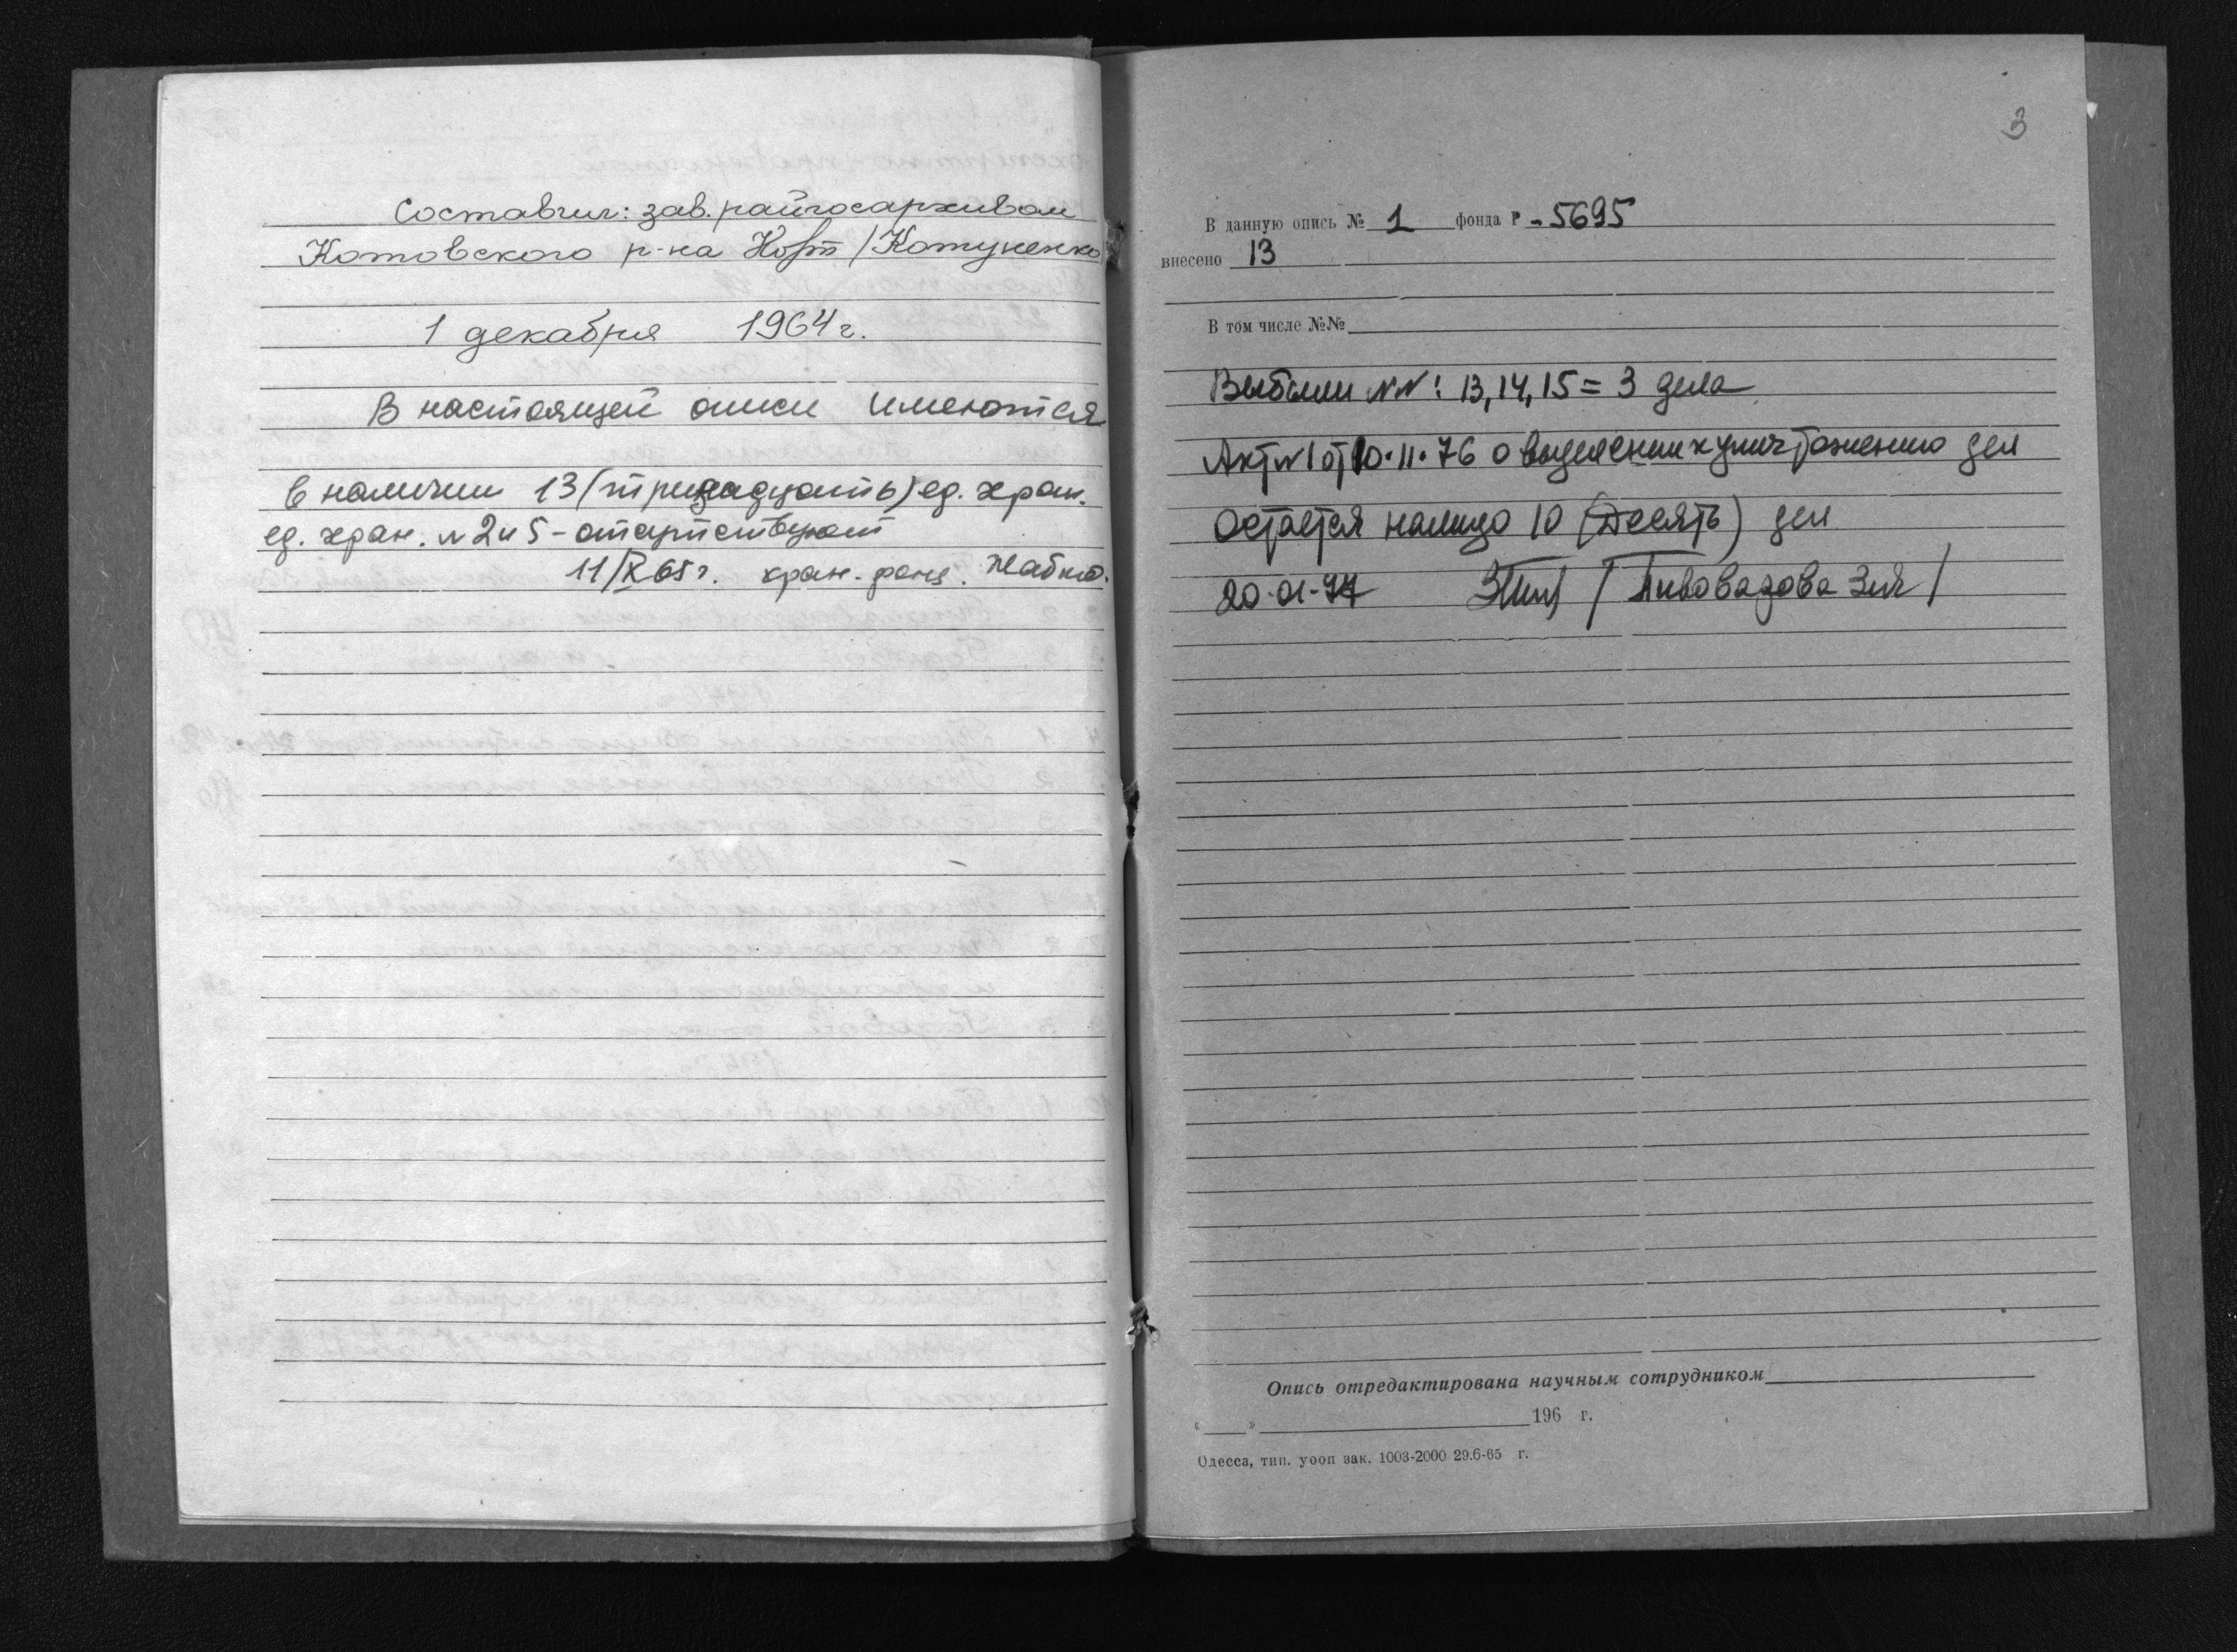 Составил: зав. райгосархивом
Котовского р-на /Котуненко
1 декабря 1964 г.
В настоящей описи имеются
в наличии 13 (тринадцать) ед. хран.
ед. хран. № 2 и 5 - отсутствуют
11/X 65 г. хран. фонд.
3
В данную опись № 1 фонда Р-5695
внесено 13
В том числе №№
Выбыли №№: 13, 14, 15 = 3 дела
Акт № 1 от 10.11.76 о выделении к уничтожению дел
Остается налицо 10 (Десять) дел
20-01-77
Опись отредактирована научным сотрудником
« » 196 г.
Одесса, тип. уооп зак. 1003-2000 29.6-65 г.